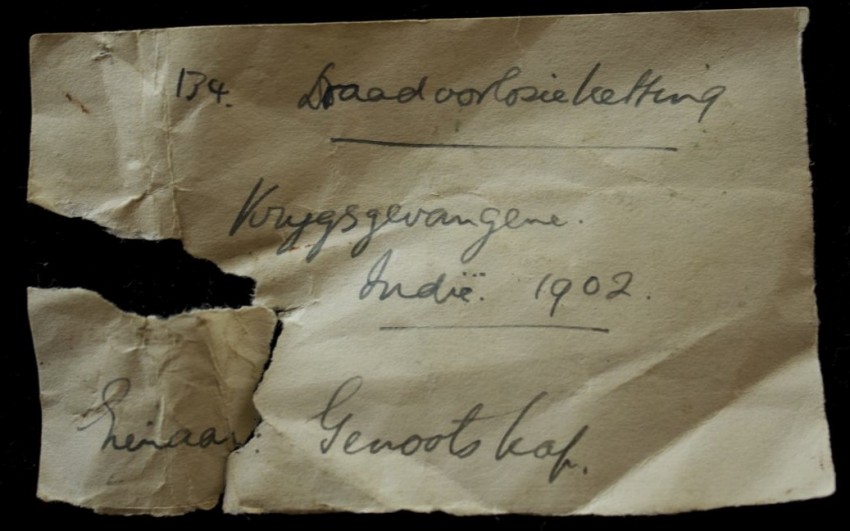 134. Draadoorlosieketting
Krygsgevangene.
Indië. 1902.
Eienaar: Genootskap.